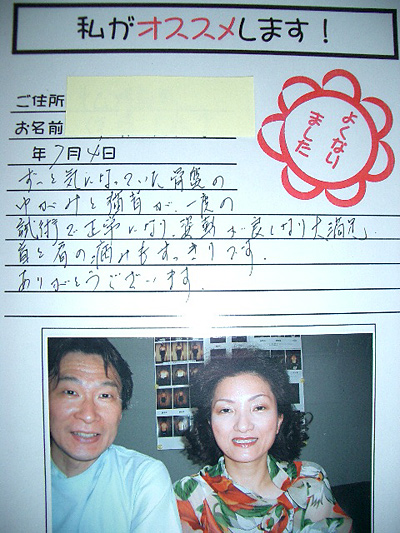 私がオススメします！
ご住所
お名前
よくなり
ました
年7月4日
ずっと気になっていた骨盤の
ゆがみと猫背が、一度の
試術で正常になり、姿勢が良くなり大満足」
首と肩の痛みもすっきりです。
ありがとうございます。